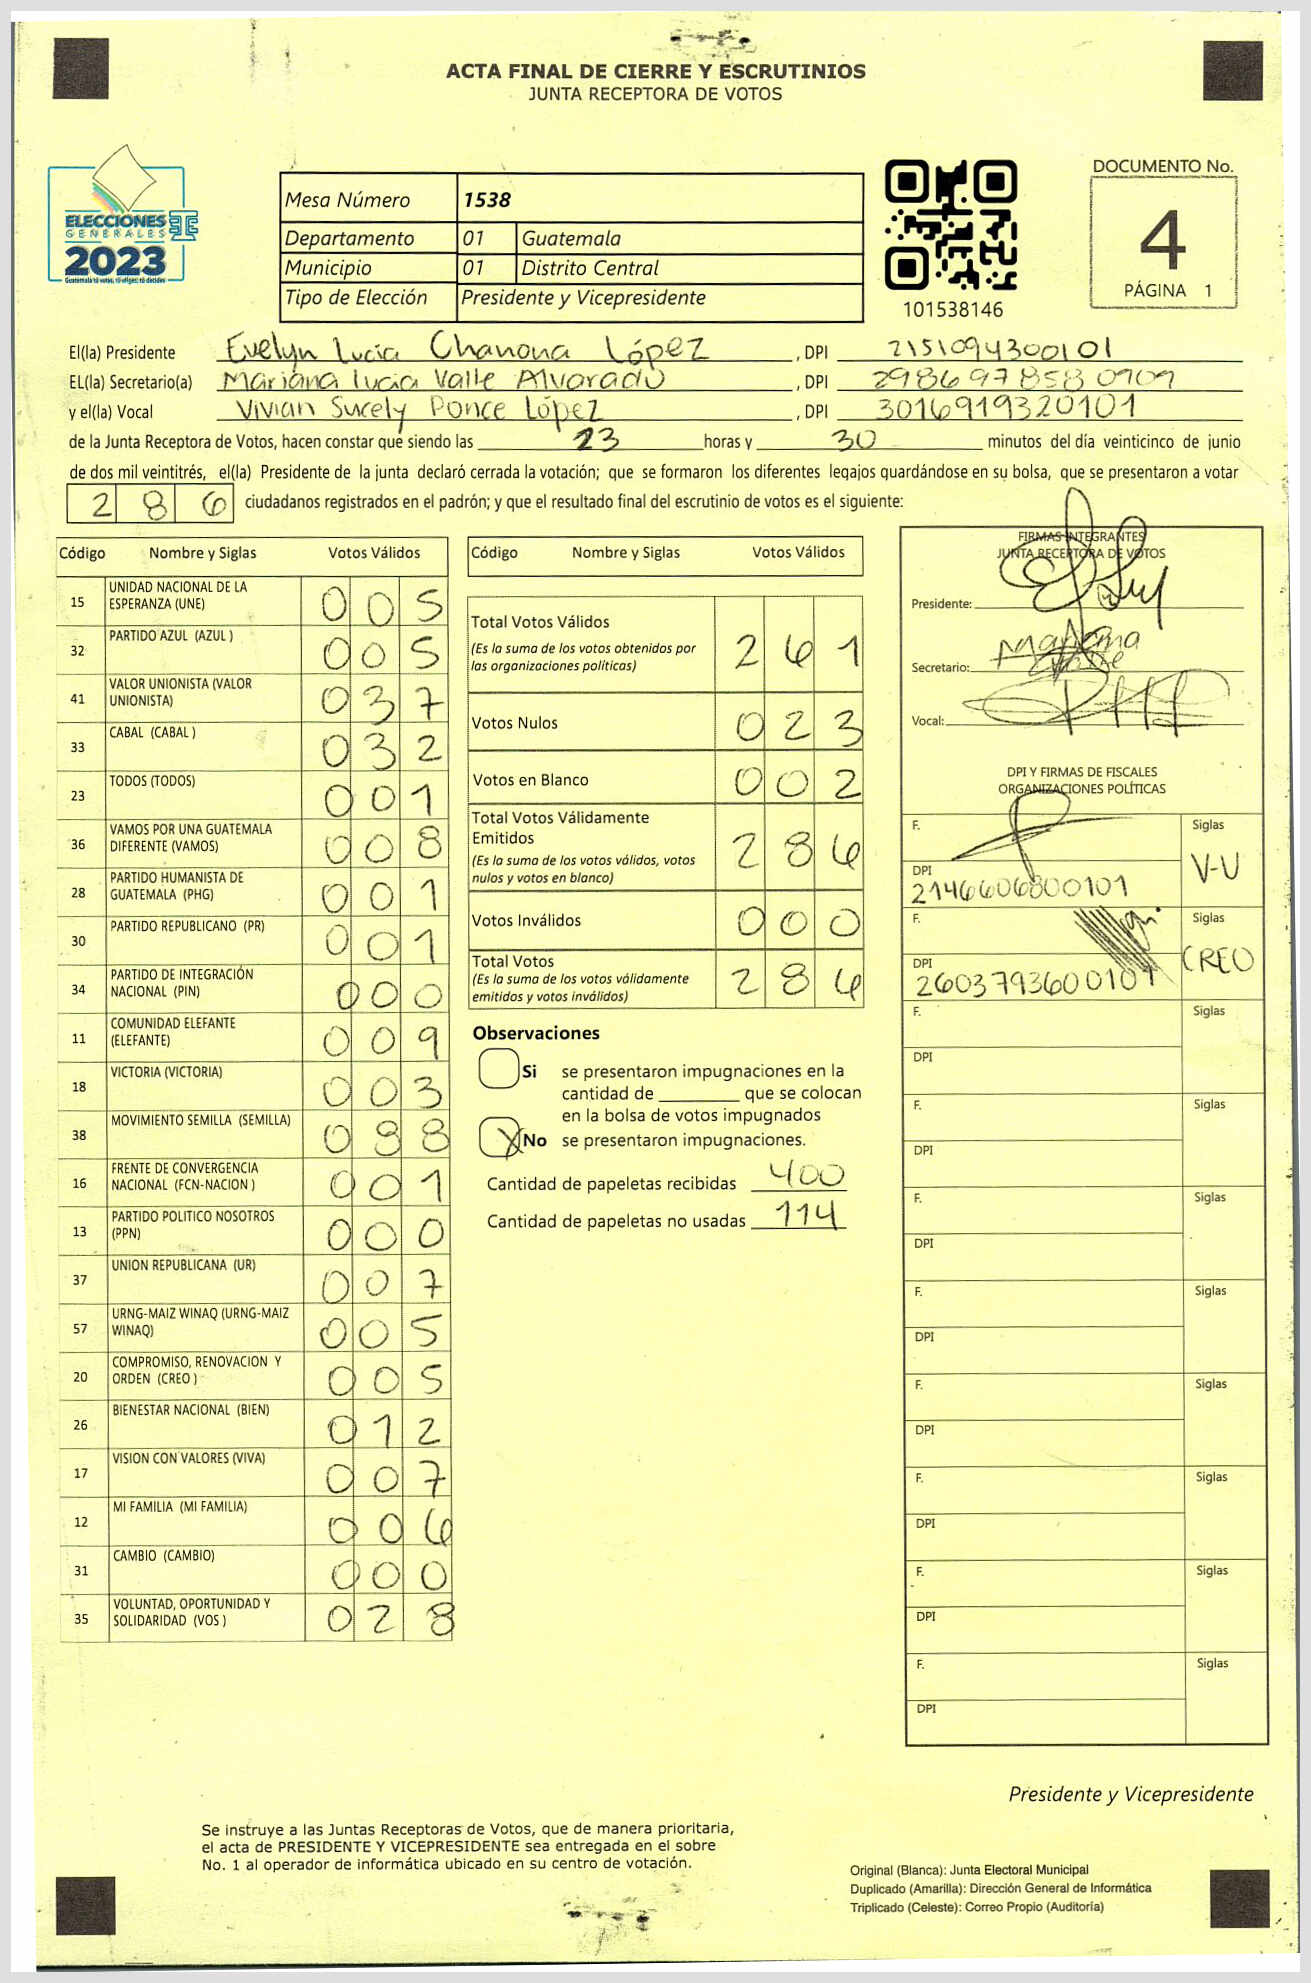 ACTA FINAL DE CIERRE Y ESCRUTINIOS
JUNTA RECEPTORA DE VOTOS
ELECCIONES
GENERALES
2023
Guatemala tú votas, tú eliges, tú decides
Mesa Número 1538
Departamento 01 Guatemala
Municipio 01 Distrito Central
Tipo de Elección Presidente y Vicepresidente
101538146
DOCUMENTO No.
4
PÁGINA 1
El(la) Presidente Evelyn Lucia Chanona López, DPI 2151094300101
EL(la) Secretario(a) Mariana lucia Valle Alvarado, DPI 2986978580909
y el(la) Vocal Vivian Sucely Ponce López, DPI 3016919320101
de la Junta Receptora de Votos, hacen constar que siendo las 23 horas y 30 minutos del día veinticinco de junio
de dos mil veintitrés, el(la) Presidente de la junta declaró cerrada la votación; que se formaron los diferentes legajos guardándose en su bolsa, que se presentaron a votar
286 ciudadanos registrados en el padrón; y que el resultado final del escrutinio de votos es el siguiente:
Código Nombre y Siglas Votos Válidos
15 UNIDAD NACIONAL DE LA ESPERANZA (UNE) 005
32 PARTIDO AZUL (AZUL ) 005
41 VALOR UNIONISTA (VALOR UNIONISTA) 037
33 CABAL (CABAL ) 032
23 TODOS (TODOS) 001
36 VAMOS POR UNA GUATEMALA DIFERENTE (VAMOS) 008
28 PARTIDO HUMANISTA DE GUATEMALA (PHG) 001
30 PARTIDO REPUBLICANO (PR) 001
34 PARTIDO DE INTEGRACIÓN NACIONAL (PIN) 000
11 COMUNIDAD ELEFANTE (ELEFANTE) 009
18 VICTORIA (VICTORIA) 003
38 MOVIMIENTO SEMILLA (SEMILLA) 088
16 FRENTE DE CONVERGENCIA NACIONAL (FCN-NACION ) 001
13 PARTIDO POLITICO NOSOTROS (PPN) 000
37 UNION REPUBLICANA (UR) 007
57 URNG-MAIZ WINAQ (URNG-MAIZ WINAQ) 005
20 COMPROMISO, RENOVACION Y ORDEN (CREO ) 005
26 BIENESTAR NACIONAL (BIEN) 012
17 VISION CON VALORES (VIVA) 007
12 MI FAMILIA (MI FAMILIA) 006
31 CAMBIO (CAMBIO) 000
35 VOLUNTAD, OPORTUNIDAD Y SOLIDARIDAD (VOS ) 028
Código Nombre y Siglas Votos Válidos
Total Votos Válidos 261
(Es la suma de los votos obtenidos por
las organizaciones políticas)
Votos Nulos 023
Votos en Blanco 002
Total Votos Válidamente
Emitidos 286
(Es la suma de los votos válidos, votos
nulos y votos en blanco)
Votos Inválidos 000
Total Votos 286
(Es la suma de los votos válidamente
emitidos y votos inválidos)
Observaciones
Si se presentaron impugnaciones en la
cantidad de ________ que se colocan
en la bolsa de votos impugnados
X No se presentaron impugnaciones.
Cantidad de papeletas recibidas 400
Cantidad de papeletas no usadas 114
FIRMAS INTEGRANTES
JUNTA RECEPTORA DE VOTOS
Presidente:
Secretario: Mariana
Vocal:
DPI Y FIRMAS DE FISCALES
ORGANIZACIONES POLÍTICAS
F. Siglas
DPI 2146606800101 V-U
F. Siglas
DPI 2603793600101 CREO
F. Siglas
DPI
F. Siglas
DPI
F. Siglas
DPI
F. Siglas
DPI
F. Siglas
DPI
F. Siglas
DPI
F. Siglas
DPI
F. Siglas
DPI
Presidente y Vicepresidente
Se instruye a las Juntas Receptoras de Votos, que de manera prioritaria,
el acta de PRESIDENTE Y VICEPRESIDENTE sea entregada en el sobre
No. 1 al operador de informática ubicado en su centro de votación.
Original (Blanca): Junta Electoral Municipal
Duplicado (Amarilla): Dirección General de Informática
Triplicado (Celeste): Correo Propio (Auditoría)